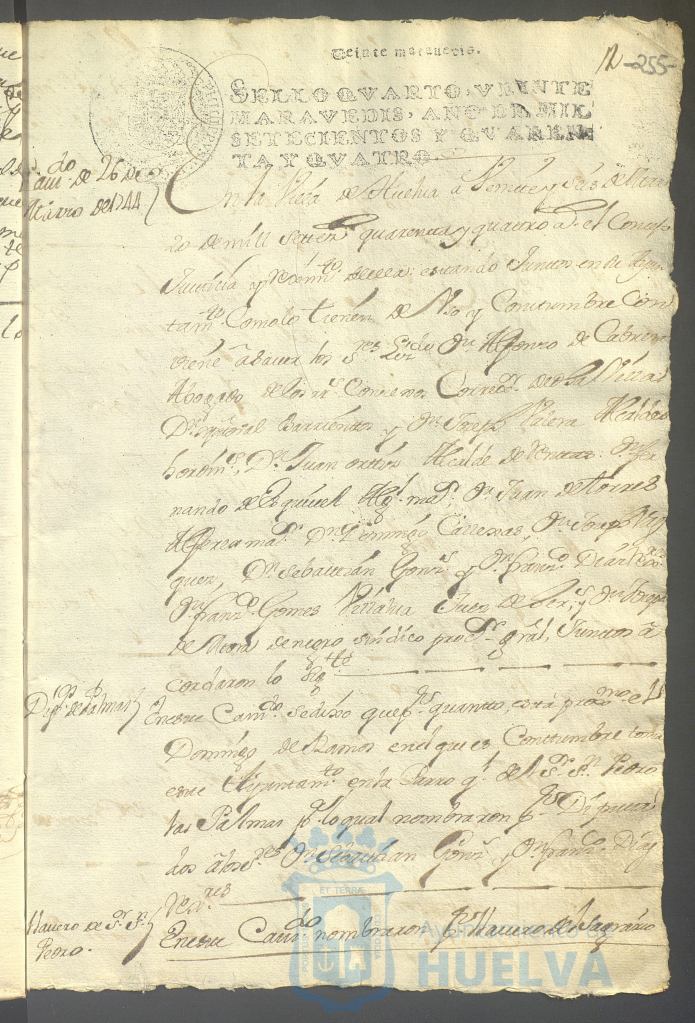 Veinte maravedis.
12 -255-
SELLO QVARTO, VEINTE
MARAVEDIS, AÑO DE MIL
SETECIENTOS Y QVAREN-
TA Y QVATRO
Cavdo de 26 de
Marzo de 1744
En la Villa de Huelva a Veinte y seis de Mar
zo de mill setezs quarenta y quatro as el Concejo
Justicia y Rejimto de ella: estando Juntos en su Ayun
tamto Como lo tienen de Uso y Contumbre Com
biene a saver los Sres Lizdo Dn Alfonso de Cabrera
Abogado de los Rs Consexos Corregor de esta Villa
Dn Barrientos y Dn Joseph Valera Alcaldes
hordins, Dn Juan Alcalde de la Dn Fer
nando de Esquivel Algl mayr Dn Juan de Torres
Alferes mayr Dn Domingo Dn Joseph Vaz
quez, Dn Sebastian Gonzs y Dn Franco Diaz
Dn Franco Gomes Villalva Juez de y Dn Joseph
de Mora de negro sindico procor gral, Juntos a
cordaron lo sigte
Dipdos de Palmas
En este Cavdo se dixo que pr quanto, esta proxmo el
Domingo de Ramos en el que es Contumbre toma
este Ayuntamto en la Parroql del Sr Sn Pedro
las Palmas pr lo qual nombraron pr Diputa
dos a los Sres Dn Sebastian Gonzs y Dn Franco Diaz
Rexres
Llavero de Sr Sn
Pedro.
En este Cavdo nombraron pr Llavero del Sagrario
ET TERRAE
AYUNTAMIENTO DE
HUELVA